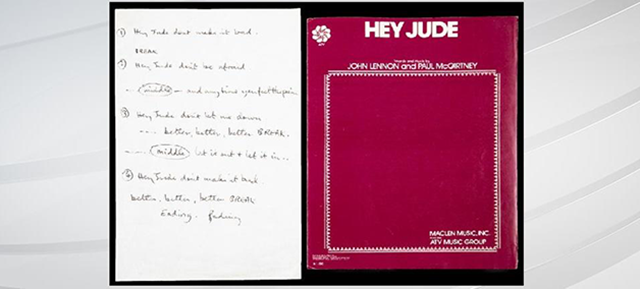 ① Hey Jude dont make it bad.
BREAK
② Hey Jude don't be afraid
middle and anytime you feel the pain
③ Hey Jude don't let me down
better, better, better BREAK.
middle let it out & let it in ..
④ Hey Jude don't make it bad
better, better, better BREAK
Ending. Fading
HEY JUDE
Words and Music by
JOHN LENNON and PAUL McCARTNEY
MACLEN MUSIC, INC.
ATV MUSIC GROUP